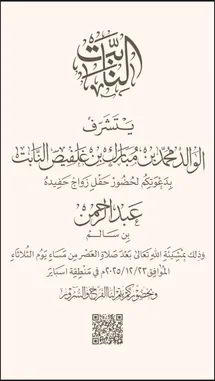 النابت
يتشرف
الوالد محمد بن مبارك بن غلفيص النابت
بدعوتكم لحضور حفل زواج حفيده
عبدالرحمن
بن سالم
وذلك بمشيئة الله تعالى بعد صلاة العصر من مساء يوم الثلاثاء
الموافق ٢٠٢٥/١٢/٢٣م في منطقة اسباير
وبحضوركم يتم لنا الفرح والسرور